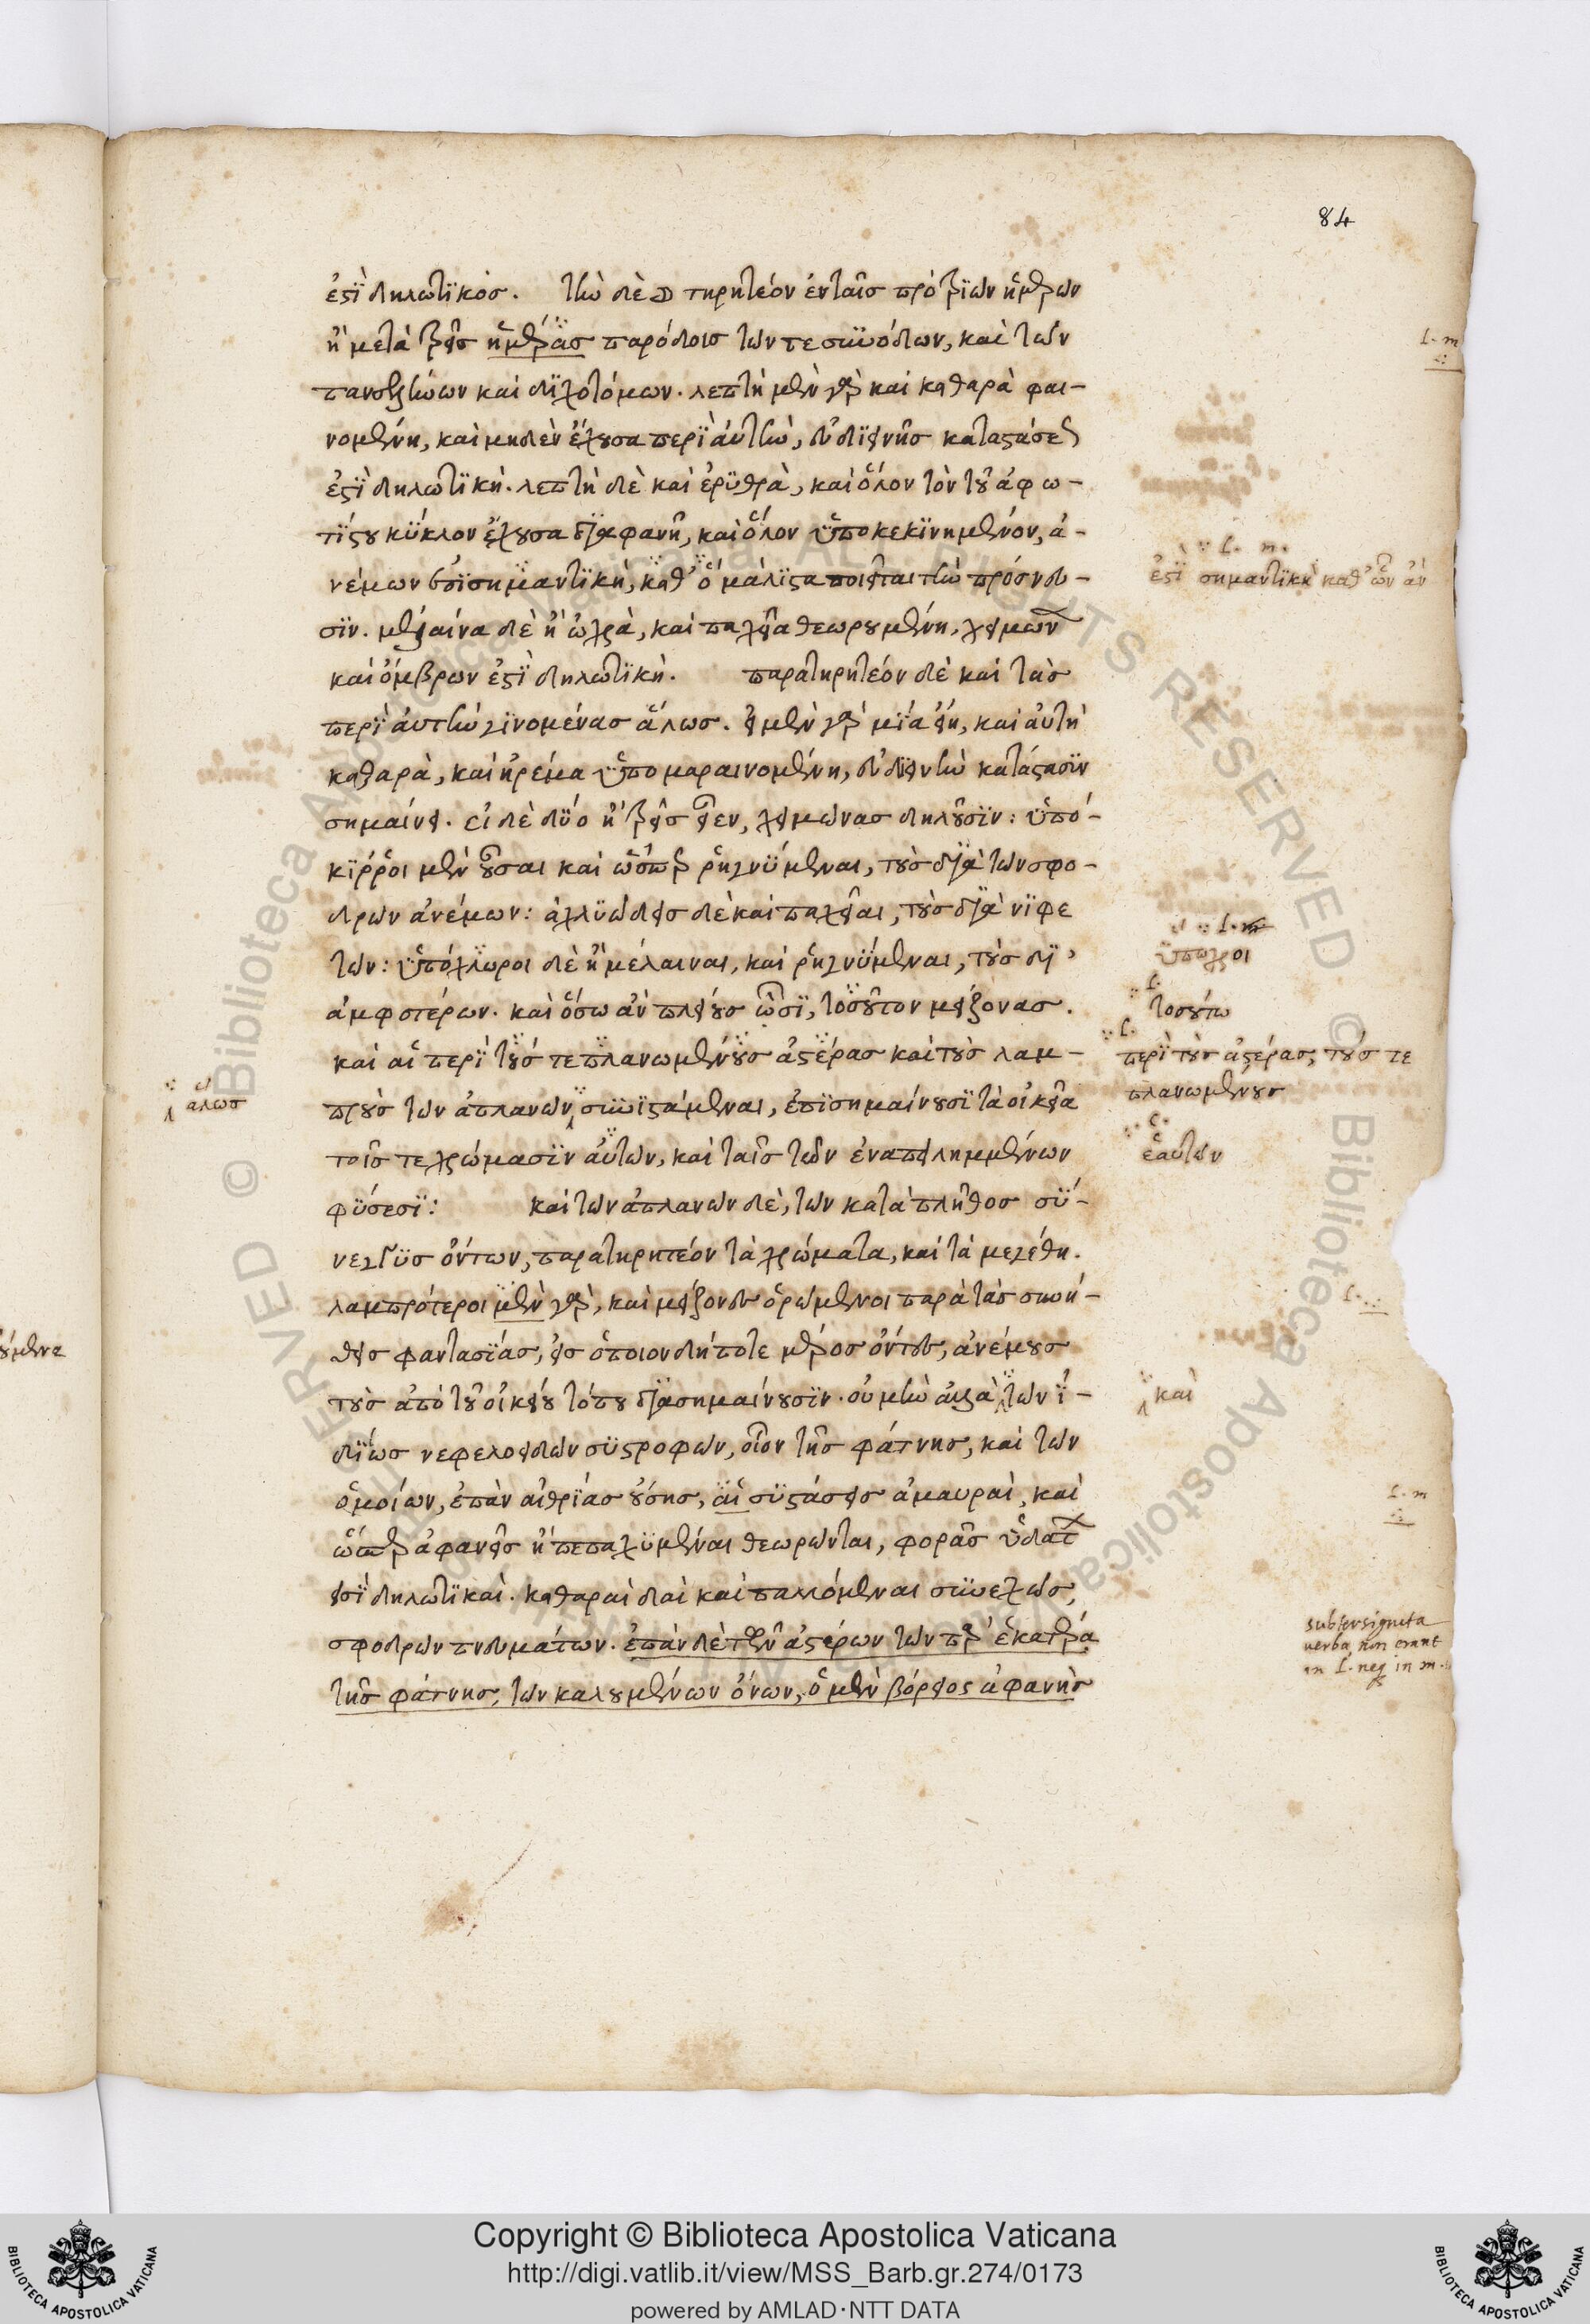 84
ἐστὶ δηλωτικός. τὴν δὲ ☽ τηρητέον ἐν ταῖς πρὸ τριῶν ἡμερῶν
ἢ μετὰ τρεῖς ἡμέρας παρόδοις τῶν τε συνόδων, καὶ τῶν
πανσελήνων καὶ διχοτόμων. λεπτὴ μὲν γὰρ καὶ καθαρὰ φαι-
νομένη, καὶ μηδὲν ἔχουσα περὶ αὐτὴν, εὐδιεινῆς καταστάσεως
ἐστὶ δηλωτική. λεπτὴ δὲ καὶ ἐρυθρὰ, καὶ ὅλον τὸν τοῦ ἀφω-
τίστου κύκλον ἔχουσα διαφανῆ, καὶ ὅλον ὑποκεκινημένον, ἀ-
νέμων ἐστὶ σημαντικὴ, καθ' ὃ μάλιστα ποιεῖται τὴν πρόσνευ-
σιν. μέλαινα δὲ ἢ ὠχρὰ, καὶ παχεῖα θεωρουμένη, χειμώνων
καὶ ὄμβρων ἐστὶ δηλωτική. παρατηρητέον δὲ καὶ τὰς
περὶ αὐτὴν γινομένας ἅλως. εἰ μὲν γὰρ μία εἴη, καὶ αὐτὴ
καθαρὰ, καὶ ἠρέμα ὑπομαραινομένη, εὐδιεινὴν κατάστασιν
σημαίνει. εἰ δὲ δύο ἢ τρεῖς εἶεν, χειμῶνας δηλοῦσιν: ὑπό-
κιρροι μὲν οὖσαι καὶ ὥσπερ ῥηγνύμεναι, τοὺς διὰ τῶν σφο-
δρῶν ἀνέμων: ἀχλυώδεις δὲ καὶ παχεῖαι, τοὺς διὰ νιφε
τῶν: ὑπόχλωροι δὲ ἢ μέλαιναι, καὶ ῥηγνύμεναι, τοὺς δι'
ἀμφοτέρων. καὶ ὅσω ἂν πλείους ὦσι, τοσοῦτον μείζονας.
καὶ αἱ περὶ τούς τε πλανωμένους ἀστέρας καὶ τοὺς λαμ-
προὺς τῶν ἀπλανῶν συνιστάμεναι, ἐπισημαίνουσι τὰ οἰκεῖα
τοῖς τε χρώμασιν αὐτῶν, καὶ ταῖς τῶν ἐναπειλημμένων
φύσεσι: καὶ τῶν ἀπλανῶν δὲ, τῶν κατὰ πλῆθος σύ-
νεγγυς ὄντων, παρατηρητέον τὰ χρώματα, καὶ τὰ μεγέθη.
λαμπρότεροι μὲν γὰρ, καὶ μείζονες ὁρώμενοι παρὰ τὰς συνή-
θεις φαντασίας, εἰς ὁποιονδήποτε μέρος ὄντες, ἀνέμους
τοὺς ἀπὸ τοῦ οἰκείου τόπου διασημαίνουσιν. οὐ μὴν ἀλλὰ τῶν ἰ-
δίως νεφελοειδῶν συστροφῶν, οἷον τῆς φάτνης, καὶ τῶν
ὁμοίων, ἐπὰν αἰθρίας οὔσης, αἱ συστάσεις ἀμαυραὶ, καὶ
ὥσπερ ἀφανεῖς ἢ πεπαχυμέναι θεωρῶνται, φορᾶς ὑδάτων
εἰσὶ δηλωτικαί. καθαραὶ δαὶ καὶ παλλόμεναι συνεχῶς,
σφοδρῶν πνευμάτων. ἐπὰν δὲ τῶν ἀστέρων τῶν παρ' ἑκάτερα
τῆς φάτνης, τῶν καλουμένων ὄνων, ὁ μὲν βόρειος ἀφανὴς
L. m
L. m.
ἐστὶ σημαντικὴ καθ' ὧν ἂν
L. m
ὕπωχροι
L.
τοσούτω
L.
περὶ τοὺς ἀστέρας τούς τε
πλανωμένους
ἅλως
ἑαυτῶν
L.
καὶ
L. m
subtersignata
verba non erant
in L. neq in m.
Copyright © Biblioteca Apostolica Vaticana
http://digi.vatlib.it/view/MSS_Barb.gr.274/0173
powered by AMLAD·NTT DATA
BIBLIOTECA APOSTOLICA VATICANA
BIBLIOTECA APOSTOLICA VATICANA